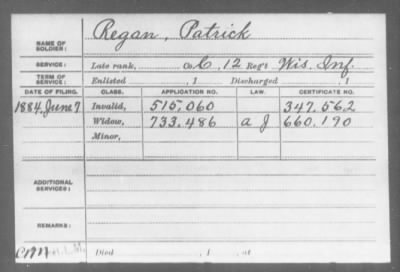 Regan, Patrick
NAME OF SOLDIER:
SERVICE: Late rank, Co. C, 12 Reg't Wis. Inf.
TERM OF SERVICE: Enlisted , 1 Discharged , 1
DATE OF FILING. CLASS. APPLICATION NO. LAW. CERTIFICATE NO.
1884, June 7 Invalid, 515,060 347,562
Widow, 733,486 a J 660,190
Minor,
ADDITIONAL SERVICES:
REMARKS:
C 1977 Died , 1 , at